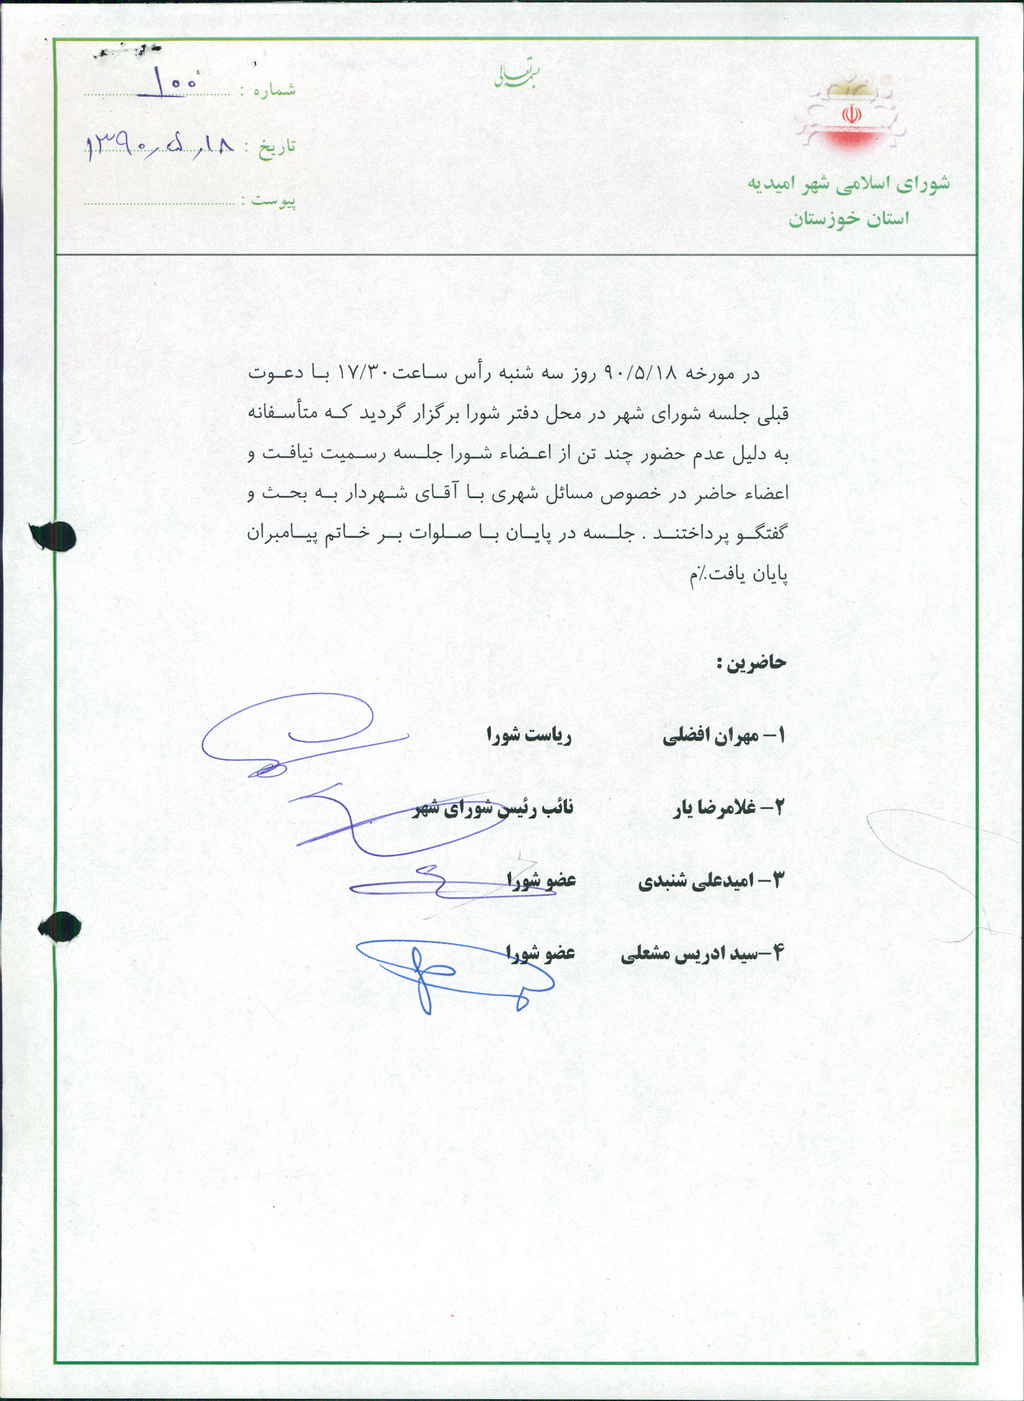 بسمه تعالی
شورای اسلامی شهر امیدیه
استان خوزستان
شماره : ۱۰۰
تاریخ : ۱۳۹۰٫۵٫۱۸
پیوست :
در مورخه ۹۰/۵/۱۸ روز سه شنبه رأس ساعت ۱۷/۳۰ با دعوت
قبلی جلسه شورای شهر در محل دفتر شورا برگزار گردید که متأسفانه
به دلیل عدم حضور چند تن از اعضاء شورا جلسه رسمیت نیافت و
اعضاء حاضر در خصوص مسائل شهری با آقای شهردار به بحث و
گفتگو پرداختند . جلسه در پایان با صلوات بر خاتم پیامبران
پایان یافت./م
حاضرین :
۱- مهران افضلی ریاست شورا
۲- غلامرضا یار نائب رئیس شورای شهر
۳- امیدعلی شنبدی عضو شورا
۴-سید ادریس مشعلی عضو شورا